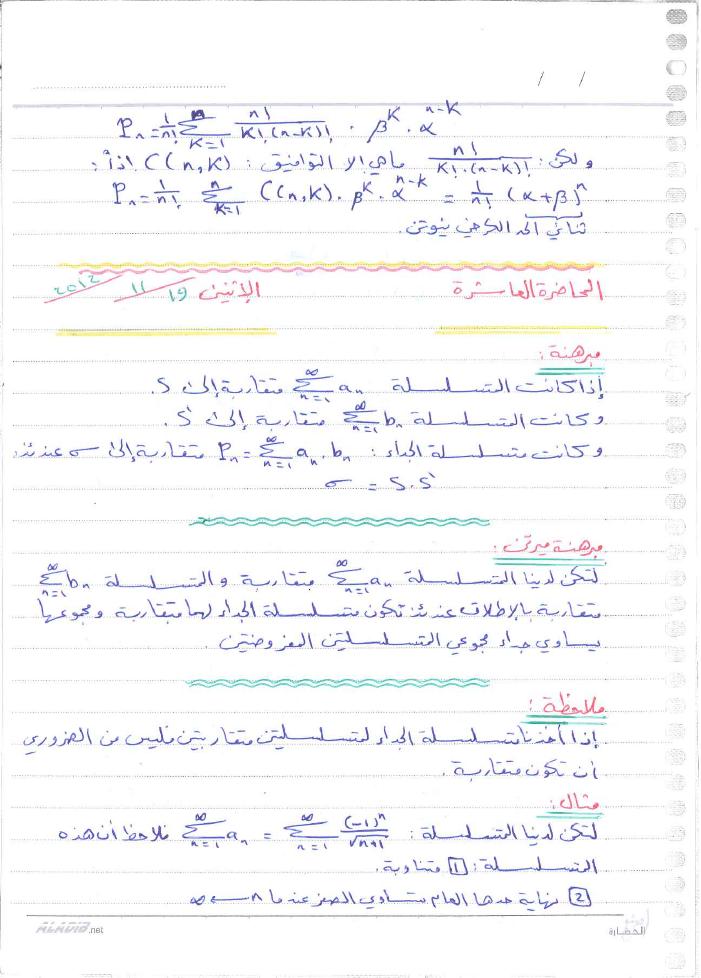 / /
P_n = 1/n! Σ_{K=1}^{n} n!/(K!.(n-K)!) . β^K . α^{n-K}
ولكن: n!/(K!.(n-K)!) ماهي إلا التوافيق: C(n,K) إذاً:
P_n = 1/n! Σ_{K=1}^{n} C(n,K). β^K . α^{n-K} = 1/n! (α+β)^n
ثنائي الحد الكرخي نيوتن.
المحاضرة العاشرة الإثنين 19/11/2012
مبرهنة:
إذا كانت المتسلسلة Σ_{n=1}^{∞} a_n متقاربة إلى S.
وكانت المتسلسلة Σ_{n=1}^{∞} b_n متقاربة إلى S'.
وكانت متسلسلة الجداء: P_n = Σ_{n=1}^{∞} a_n . b_n متقاربة إلى σ عندئذ:
σ = S.S'
مبرهنة ميرتن:
لتكن لدينا المتسلسلة Σ_{n=1}^{∞} a_n متقاربة والمتسلسلة Σ_{n=1}^{∞} b_n
متقاربة بالإطلاق عندئذ تكون متسلسلة الجداء لهما متقاربة ومجموعها
يساوي جداء مجموعي المتسلسلتين المفروضتين.
ملاحظة:
إذا أخذنا متسلسلة الجداء لمتسلسلتين متقاربتين فليس من الضروري
أن تكون متقاربة.
مثال:
لتكن لدينا المتسلسلة: Σ_{n=1}^{∞} a_n = Σ_{n=1}^{∞} (-1)^n/√(n+1) فلاحظ أن هذه
المتسلسلة: [1] متناوبة.
[2] نهاية حدها العام تساوي الصفر عندما n → ∞
ALADIB.net
الحضارة